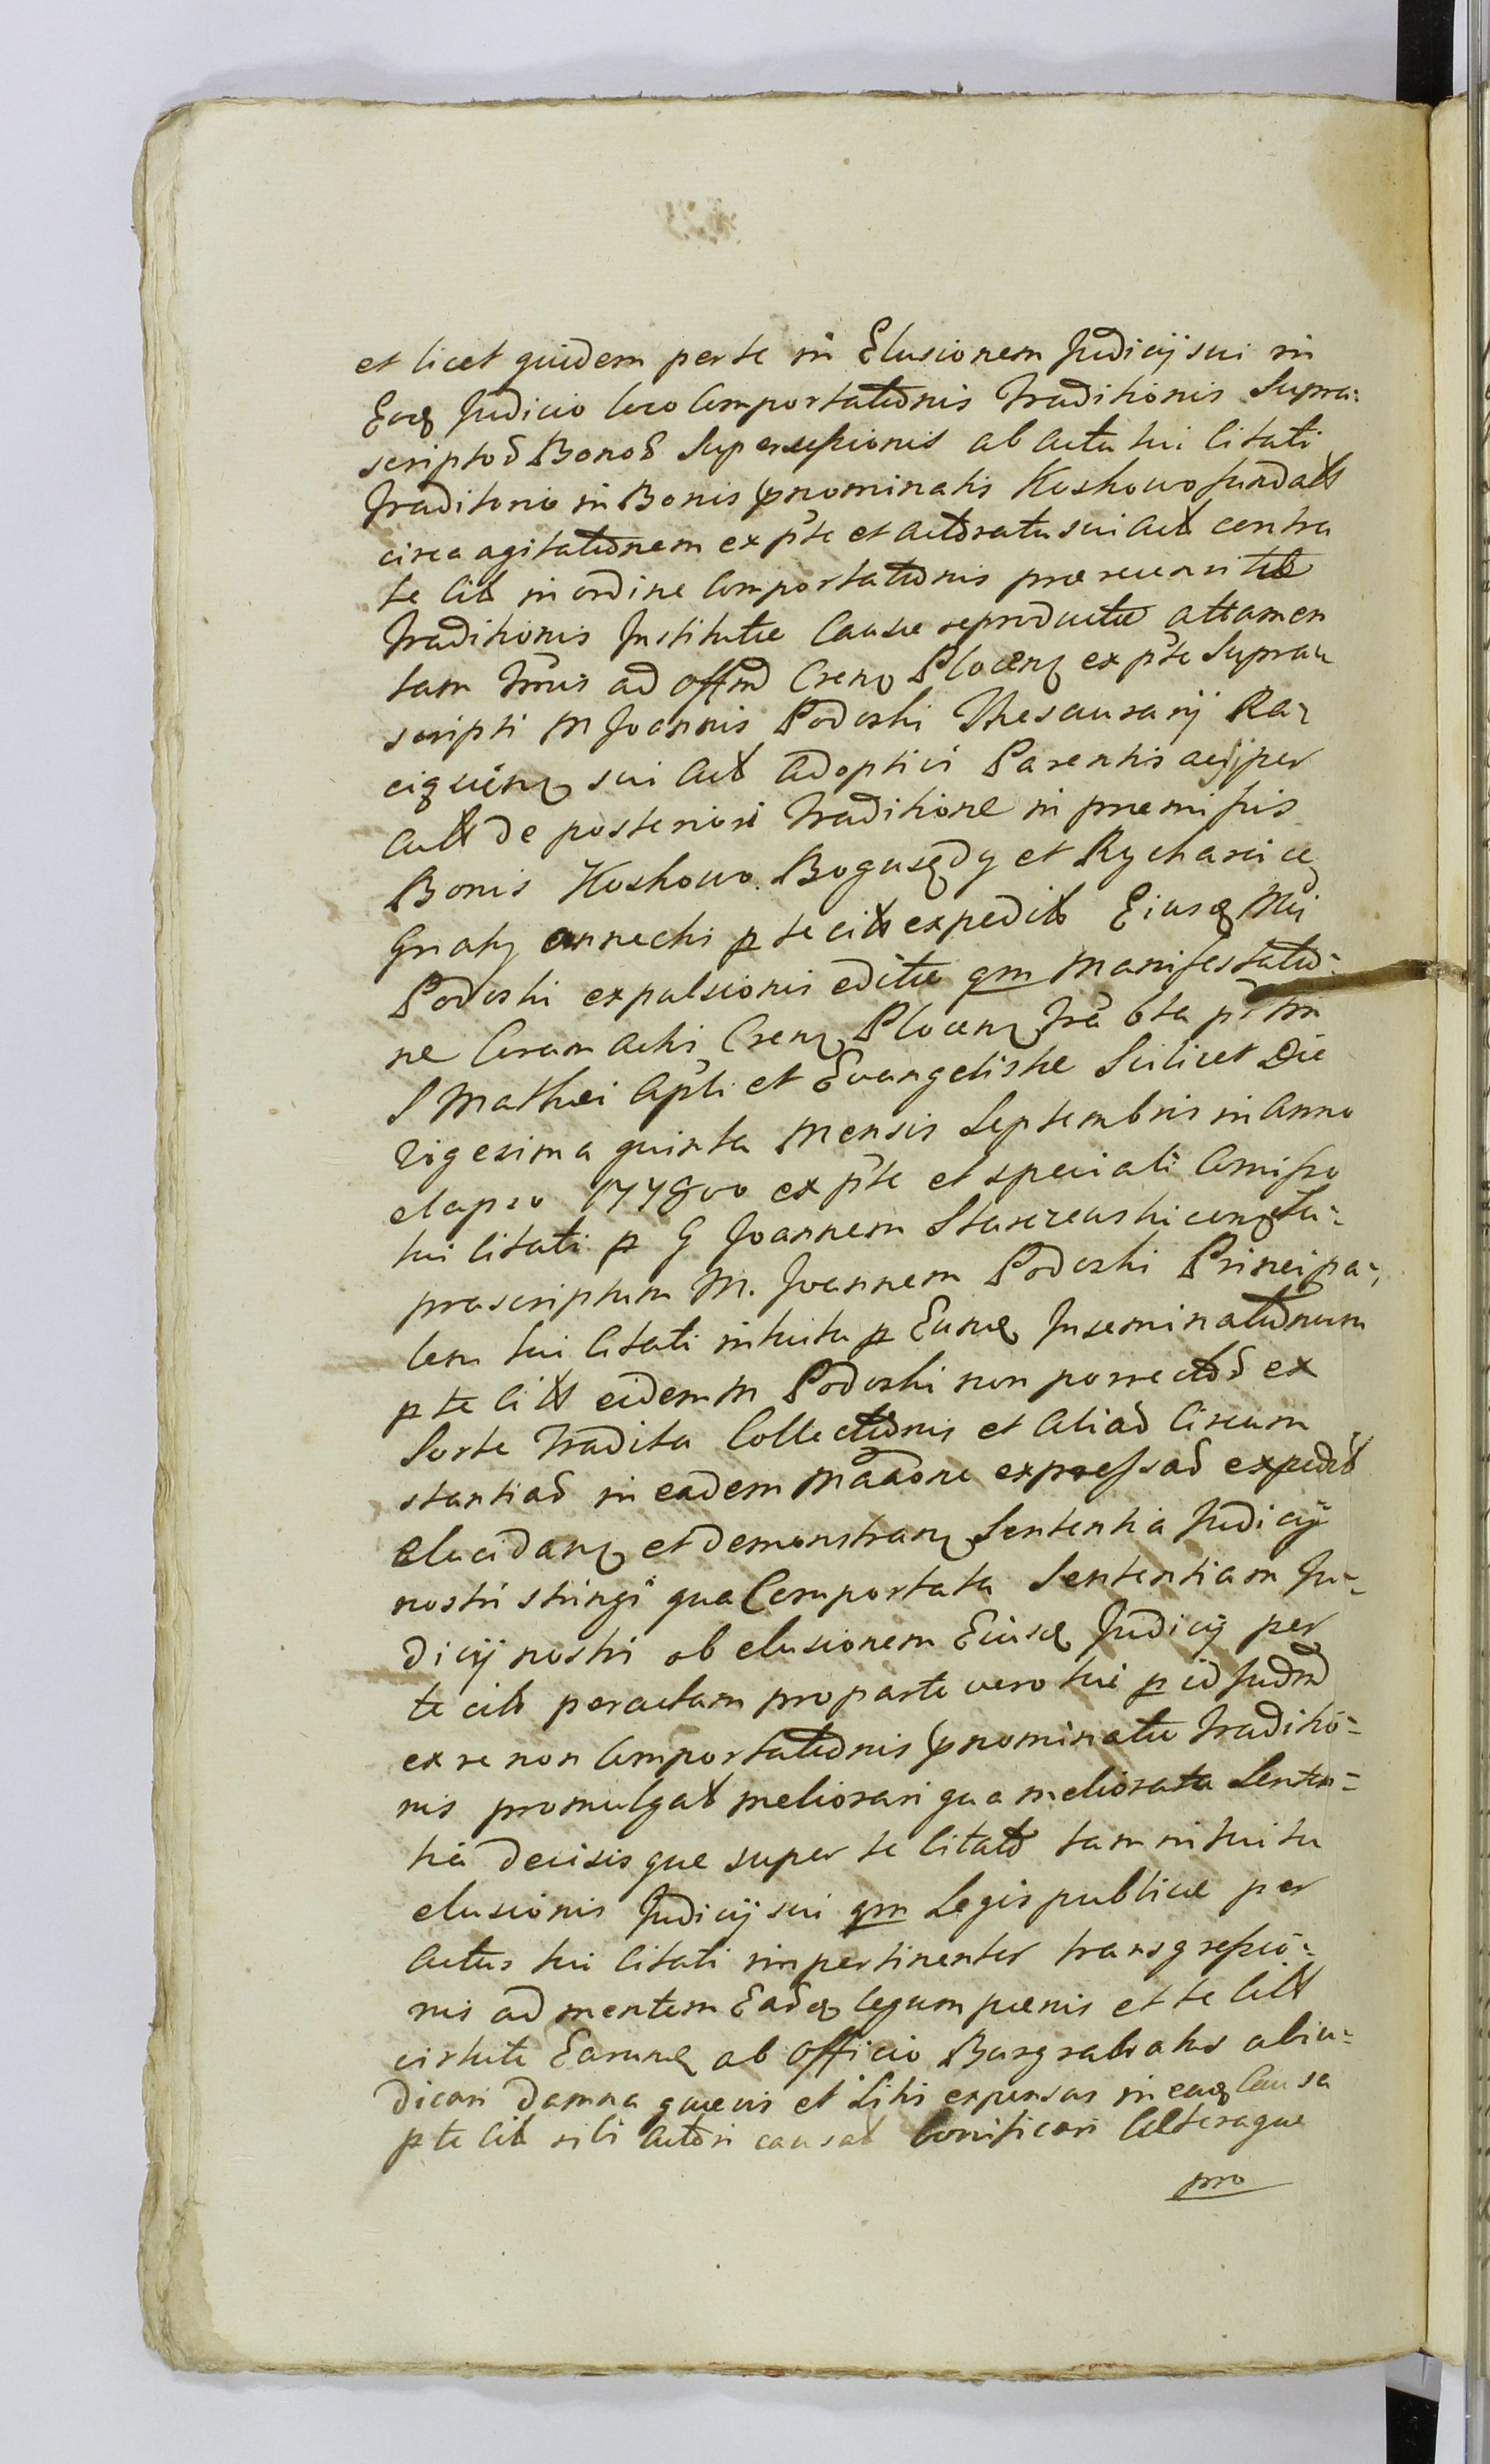 et licet quidem per te in Elusionem Judicij sui in
Eoq Judicio loco Comportationis Traditionis Supra=
scriptor Bonor Supersessionis ab actu tui Citati
Traditorio in Bonis pnominatis Koskowo fundatt
circa agitationem ex pte et actoratu sui act contra
te Cit in ordine Comportationis prærecensitæ
Traditionis Institutæ Causæ reproductæ attamen
tam Tmis ad Offm Cren Plocen ex pte Supra
scripti M Joannis Podoski Thesaurarij Ra
ciązien sui act adoptivi Parentis ac per
actt de posteriori Traditione in præmissis
Bonis Koskowo Bogusędy et Rycharcice
Gnaty annechi p te citt expedit Eiusq Mci
Podoski expulsionis editæ qm Manifestatio=
ne Coram actis Cren Plocen fra 6ta p fm
S Mathæi Apli et Evangelistæ Scilicet Die
vigesima quinta Mensis Septembris in Anno
elapso 1778vo ex pte et speciali Comisso
tui Citati p G Joannem Staszewski con Su=
prascriptum M. Joannem Podoski Principa=
lem tui Citati intuitu p Eunq Inseminationum
p te Citt eidem M Podoski non porrector ex
Sorte Tradita Collectionis et Aliar Circum
stantiar in eadem Maaone expressar expedit
elucidan et demonstran Sententia Judicij
nostri stringi qua Comportata Sententiam Ju=
dicij nostri ob elusionem Eiusq Judicij per
te cit peractam pro parte vero tui p id Judm
ex re non Comportationis pnominatæ Traditio=
nis promulgat meliorari qua meliorata Senten=
tia decisisque super te Citato tam intuitu
elusionis Judicij sui qm Legis publicæ per
actus tui Citati impertinenter transgressio=
nis ad mentem Earq legum pænis et te Citt
virtute Earunq ab Officio Burgrabiatus abiu=
dicari damna quævis et Litis expensas in eaq Causa
p te Cit sibi Actori causat bonificari Alteraque
pro